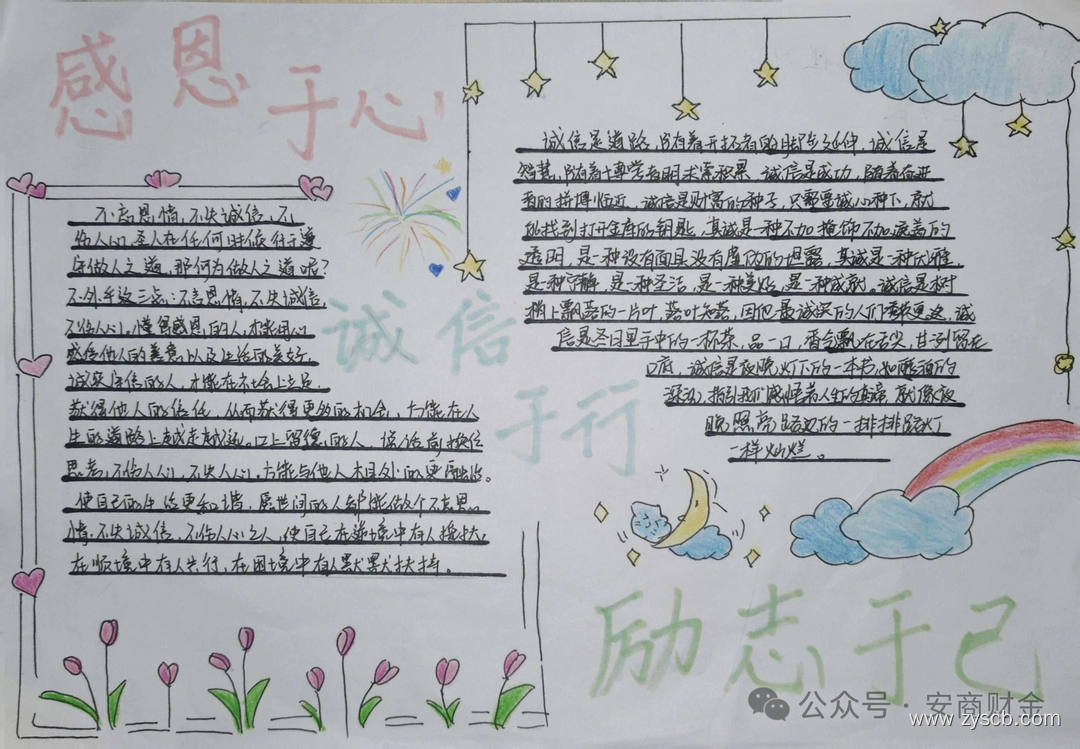 感恩于心
不忘恩情,不失诚信,不
伤人心,圣人在任何时候行于遵
守做人之道,那何为做人之道呢?
不外乎这三点:不忘恩情,不失诚信,
不伤人心,懂得感恩的人,才能用心
感悟他人的善意以及生活的美好,
诚实守信的人,才能在社会上立足,
获得他人的信任,从而获得更多的机会,方能在人
生的道路上越走越远。口上留德的人,说话前换位
思考,不伤人心,不失人心,方能与他人相处的更融洽。
使自己的生活更和谐,愿世间的人都能做个不忘恩
情,不失诚信,不伤人心之人,使自己在逆境中有人搀扶,
在顺境中有人共行,在困境中有人默默扶持。
诚信
于行
诚信是道路,随着开拓者的脚步延伸,诚信是
智慧,随着博学者的求索积累,诚信是成功,随着奋进
者的拼搏临近,诚信是财富的种子,只需要诚心种下,就
能找到打开金库的钥匙,真诚是一种不加掩饰不加遮盖的
透明,是一种没有面具没有虚伪的坦露,真诚是一种优雅,
是一种宁静,是一种圣洁,是一种美好,是一种成熟,诚信是树
梢上飘落的一片叶,落叶知 因
最诚实的人们
诚
信是冬日里手中的一杯茶,品一口,香气飘在舌尖,甘洌留在
心底,诚信是夜晚灯下的一本书,如醍醐的
深沉,指引我们感悟着人生的真谛,就像夜
晚照亮路边的一排排路灯
一样灿烂。
励志于己
公众号·安商财金
www.zyscb.com